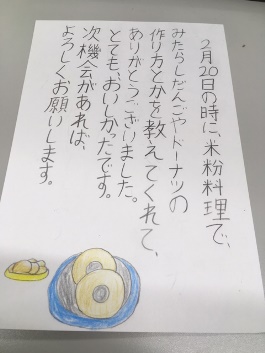 2月20日の時に、米粉料理で、
みたらしだんごやドーナツの
作り方とかを教えてくれて、
ありがとうございました。
とても、おいしかったです。
次機会があれば、
よろしくお願いします。